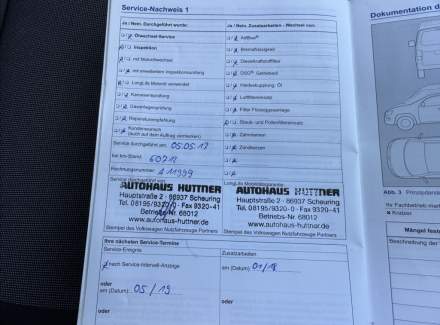 Service-Nachweis 1
Dokumentation d
Ja / Nein: Durchgeführt wurde:
Ja / Nein: Zusatzarbeiten - Wechsel von:
Ölwechsel-Service
AdBlue®
Inspektion
Bremsflüssigkeit
mit Motorölwechsel
Dieselkraftstofffilter
mit erweitertem Inspektionsumfang
DSG® Getriebeöl
LongLife Motoröl verwendet
Haldexkupplung: Öl
Karosserieprüfung
Luftfiltereinsatz
Gasanlagenprüfung
Filter Flüssiggasanlage
Reparaturempfehlung
Staub- und Pollenfiltereinsatz
Kundenwunsch
(auch auf dem Auftrag vermerken)
Zahnriemen
Zündkerzen
Service durchgeführt am: 05.05.17
bei km-Stand: 60718
Rechnungsnummer:
Service durchgeführt von:
LongLife Mobilitätsgarantie
AUTOHAUS HUTTNER
Hauptstraße 2 - 86937 Scheuring
Tel. 08195/9320-0 - Fax 9320-41
Betriebs-Nr. 68012
www.autohaus-huttner.de
Stempel des Volkswagen Nutzfahrzeuge Partners
AUTOHAUS HUTTNER
Hauptstraße 2 - 86937 Scheuring
Tel. 08195/9320-0 - Fax 9320-41
Betriebs-Nr. 68012
www.autohaus-huttner.de
Stempel des Volkswagen Nutzfahrzeuge Partners
Ihre nächsten Service-Termine
Service-Ereignis
Zusatzarbeiten
nach Service-Intervall-Anzeige
am (Datum) 01/18
oder
am (Datum) 05/19
oder
oder
Abb. 3 Prinzipdarste
Ihr Fachbetrieb mark
Kratzer
Mängel fests
Beschreibung der